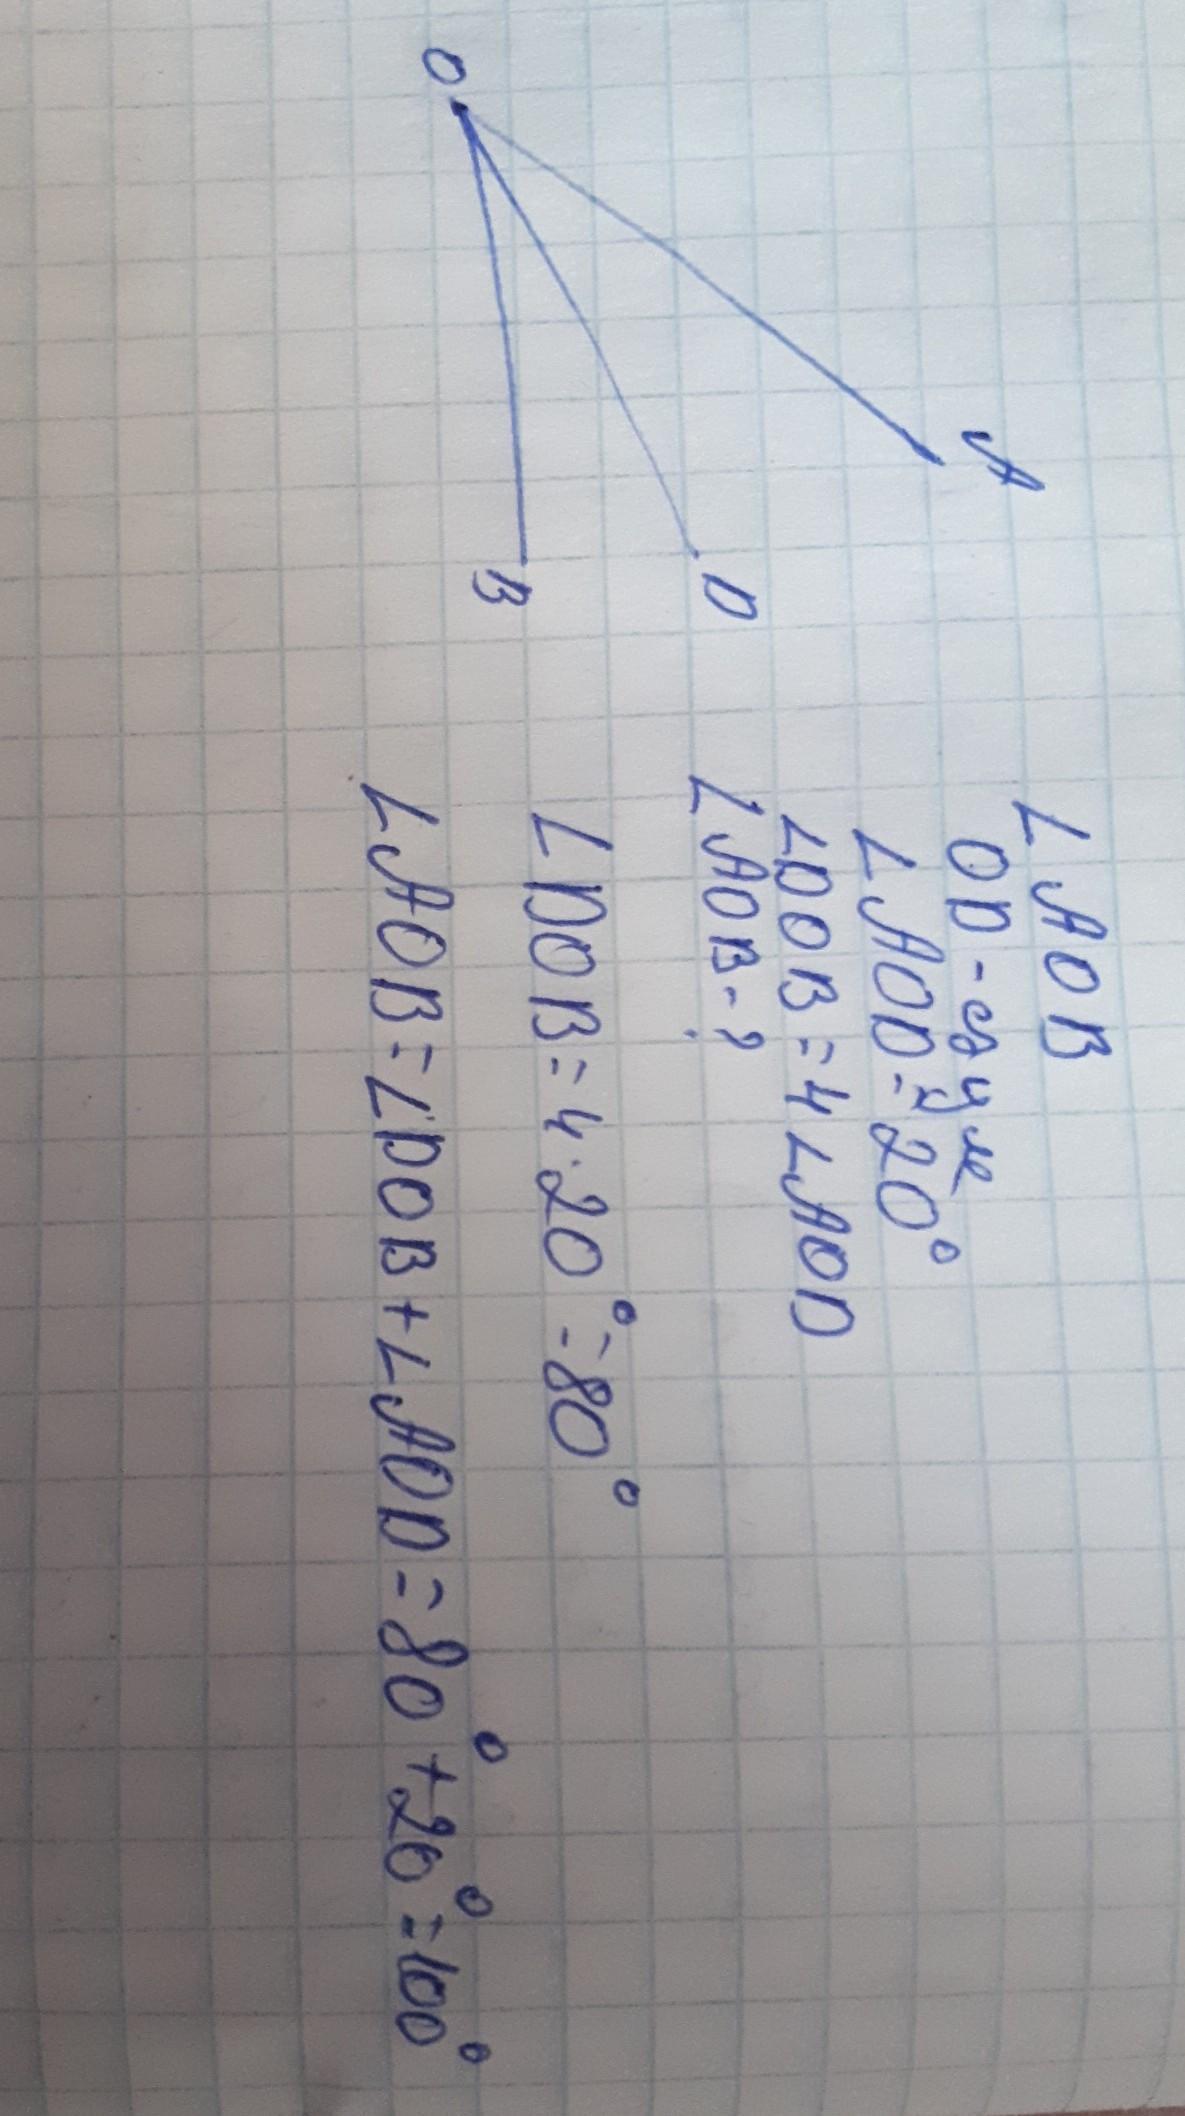 O
A
D
B
∠AOB
OD -
∠AOD = 20°
∠DOB = 4 ∠AOD
∠AOB - ?
∠DOB = 4·20° = 80°
∠AOB = ∠DOB + ∠AOD = 80° + 20° = 100°